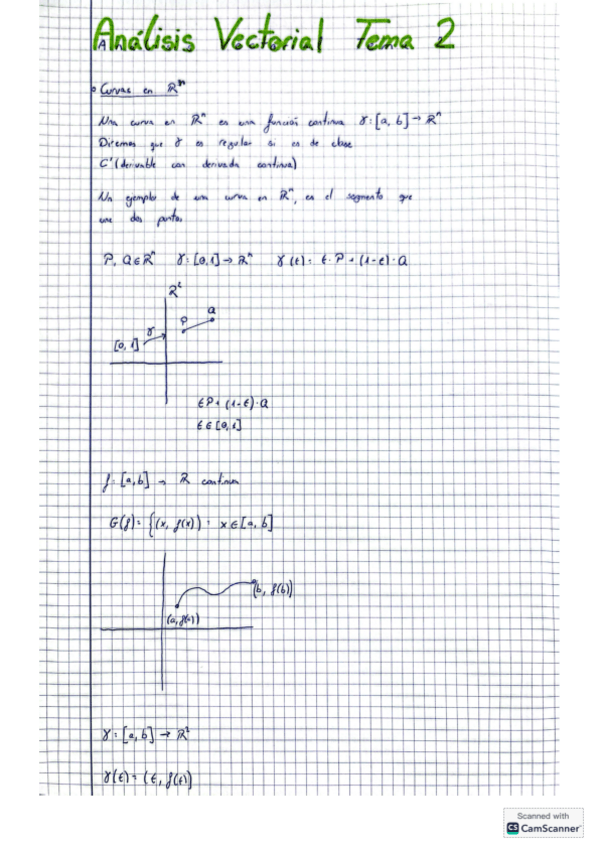 Análisis Vectorial Tema 2
Curvas en ℝⁿ
Una curva en ℝⁿ es una función continua γ: [a, b] → ℝⁿ
Diremos que γ es regular si es de clase
C¹ (derivable con derivada continua)
Un ejemplo de una curva en ℝⁿ, es el segmento que
une dos puntos
P, Q ∈ ℝⁿ γ: [0,1] → ℝⁿ γ(t) = t · P + (1-t) · Q
ℝ²
P Q
[0, 1] γ
tP + (1-t) · Q
t ∈ [0, 1]
f: [a, b] → ℝ continua
G(f) = {(x, f(x)) : x ∈ [a, b]
(b, f(b))
(a, f(a))
γ: [a, b] → ℝ²
γ(t) = (t, f(t))
Scanned with
CS CamScanner